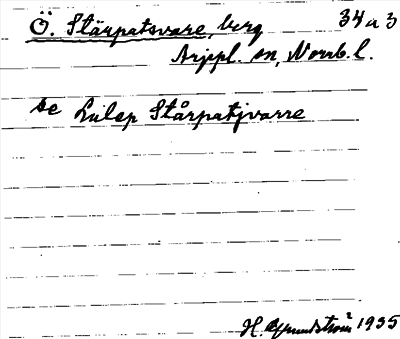 Ö. Stärpatsvare, berg 34 a 3
Arjepl. sn, Norrb. l.
se Lulep Stårpatjvarre
H. 1935